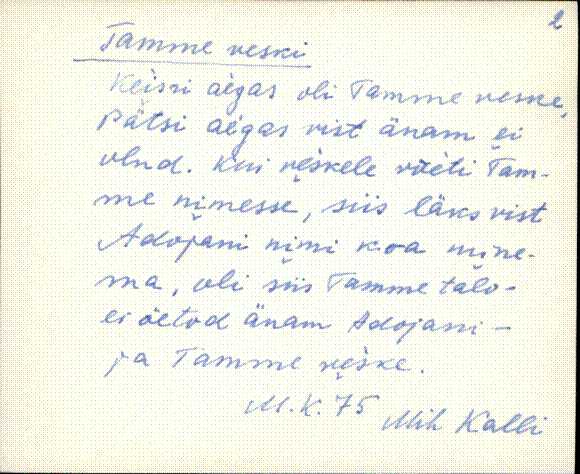 2
Tamme veski
Keisri aėgas oli Tamme veske,
Pätsi aėgas vist änam ei
olnd. Kui veskele võėti Tam-
me nimesse, siis läks vist
Adojani nimi koa mine-
ma, oli siis Tamme talo-
ei öetod änam Adojani -
ja Tamme veske.
M.K. 75
Mih Kalli